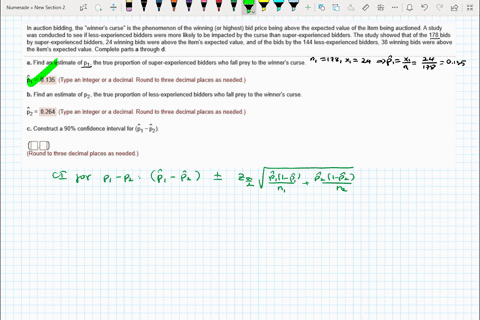 Numerade » New Section 2
In auction bidding, the "winner's curse" is the phenomenon of the winning (or highest) bid price being above the expected value of the item being auctioned. A study
was conducted to see if less-experienced bidders were more likely to be impacted by the curse than super-experienced bidders. The study showed that of the 178 bids
by super-experienced bidders, 24 winning bids were above the item's expected value, and of the bids by the 144 less-experienced bidders, 38 winning bids were above
the item's expected value. Complete parts a through d.
a. Find an estimate of p₁, the true proportion of super-experienced bidders who fall prey to the winner's curse. n₁ = 178, x₁ = 24 ⇒ p̂₁ = x₁/n = 24/178 = 0.135
p̂₁ = 0.135 (Type an integer or a decimal. Round to three decimal places as needed.)
b. Find an estimate of p₂, the true proportion of less-experienced bidders who fall prey to the winner's curse.
p̂₂ = 0.264 (Type an integer or a decimal. Round to three decimal places as needed.)
c. Construct a 90% confidence interval for (p̂₁ - p̂₂).
(Round to three decimal places as needed.)
CI for p₁-p₂ : (p̂₁ - p̂₂) ± z α/2 √ p̂₁(1-p̂₁)/n₁ + p̂₂(1-p̂₂)/n₂